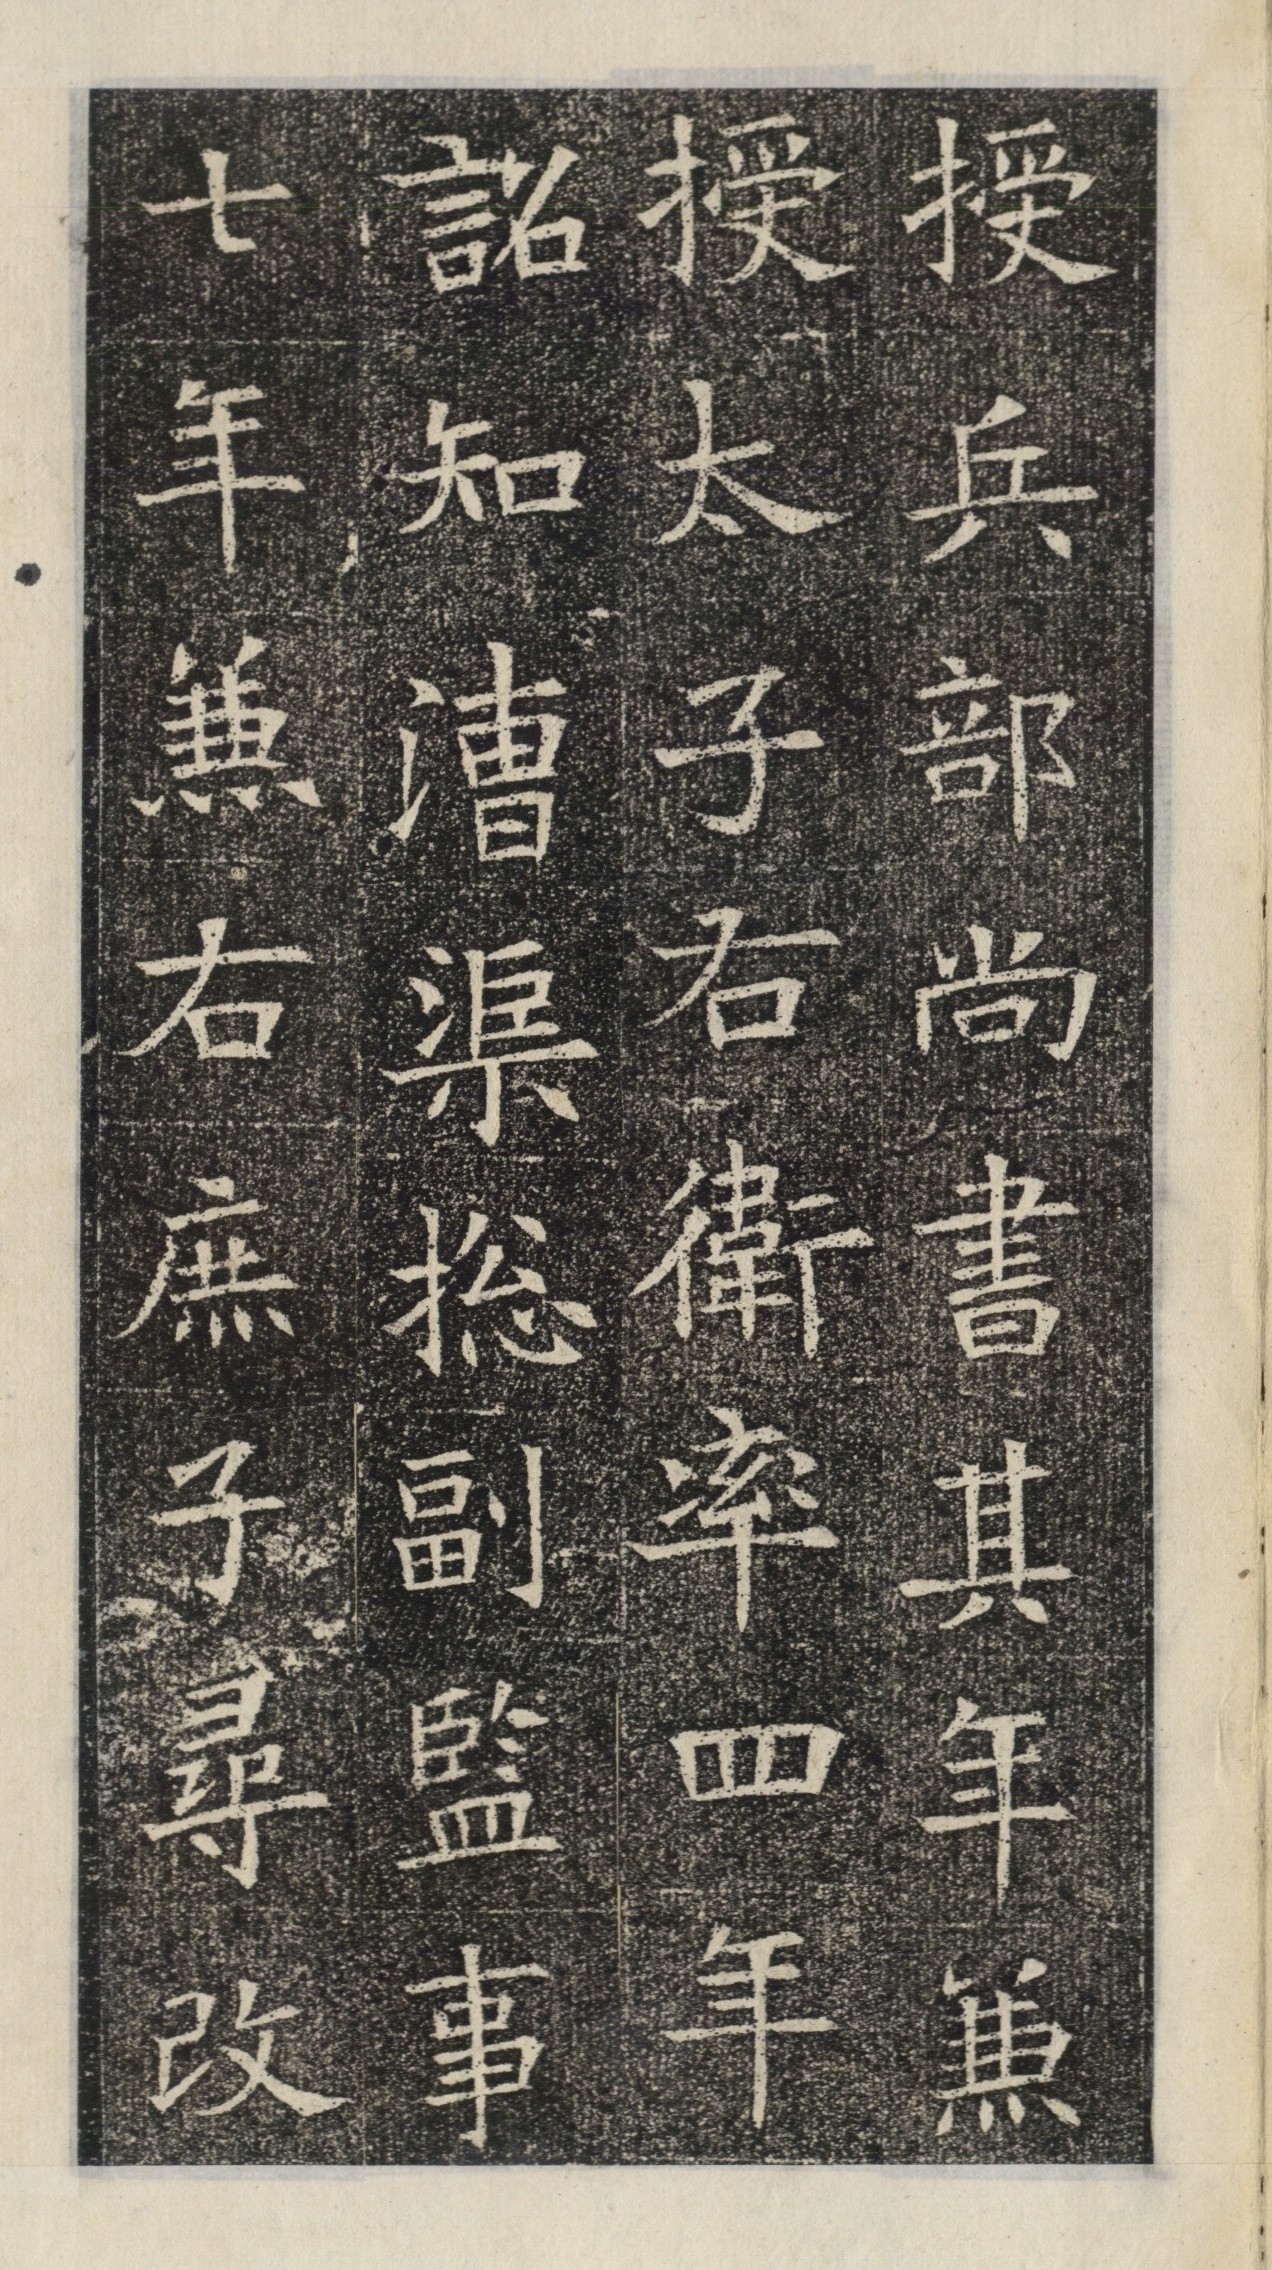 授兵部尚書其年兼
授太子右衛率四年
詔知漕渠揔副監事
七年兼右庶子尋改